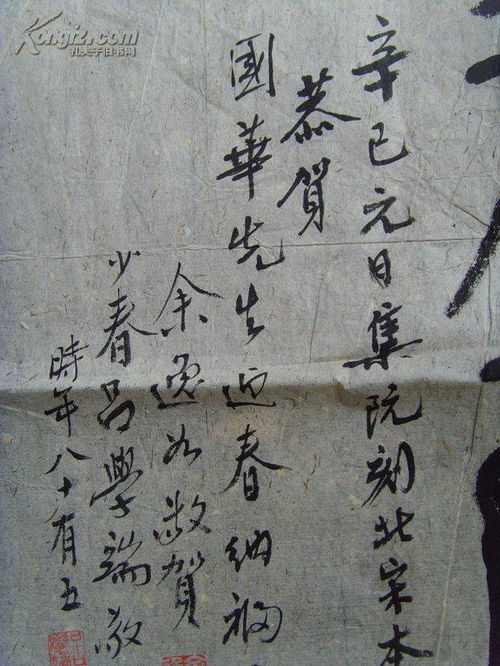 Kongfz.com
孔夫子旧书网
辛巳元日集阮刻北宋本
恭賀
國華先生迎春納福
余逸如敬賀
少春呂學端敬
時年八十有五